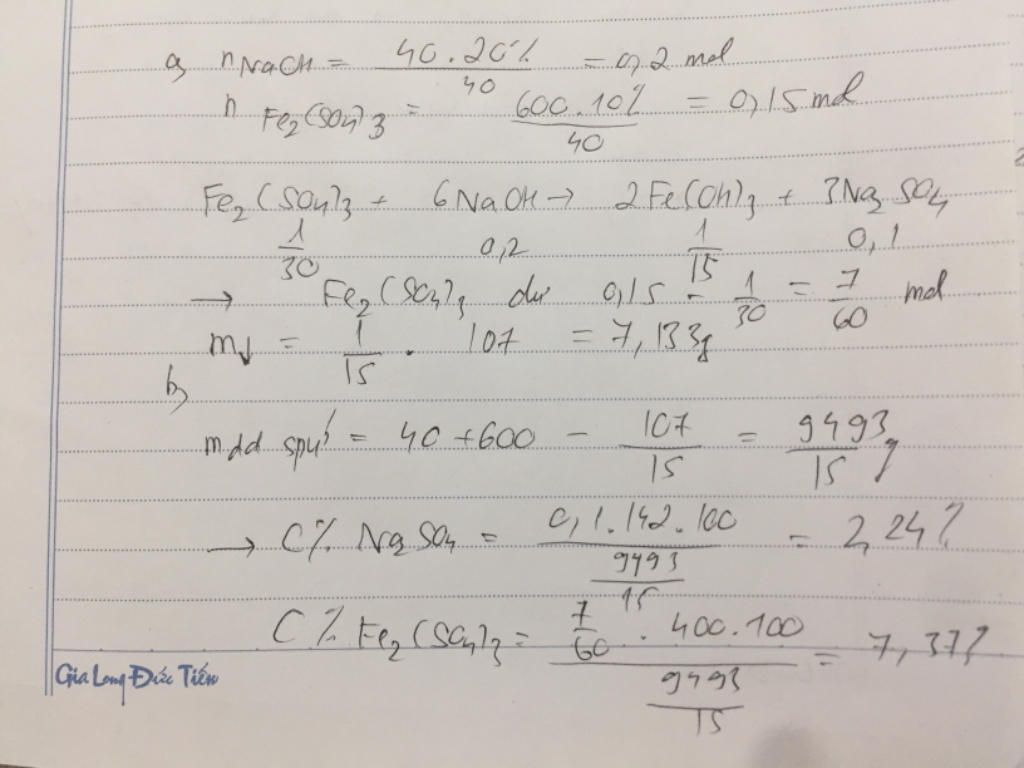 a, nNaOH = 40.20% / 40 = 0,2 mol
n Fe2(SO4)3 = 600.10% / 40 = 0,15 mol
Fe2(SO4)3 + 6NaOH → 2Fe(OH)3 + 3Na2SO4
1/30 0,2 1/15 0,1
→ Fe2(SO4)3 dư 0,15 - 1/30 = 7/60 mol
m↓ = 1/15 . 107 = 7,133g
b,
mdd spư = 40 + 600 - 107/15 = 9493/15 g
→ C% Na2SO4 = 0,1.142.100 / 9493/15 = 2,24%
C% Fe2(SO4)3 = 7/60 . 400.100 / 9493/15 = 7,37%
Gia Long Đức Tiến